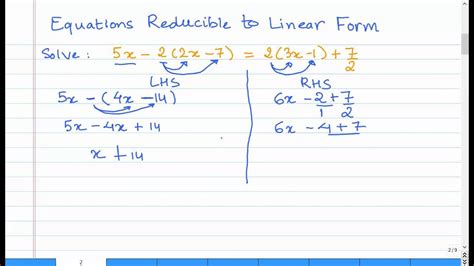 Equations Reducible to Linear Form
Solve : 5x - 2(2x-7) = 2(3x-1) + 7/2
LHS
5x - (4x - 14)
5x - 4x + 14
x + 14
RHS
6x - 2/1 + 7/2
6x - 4 + 7
2/9
2